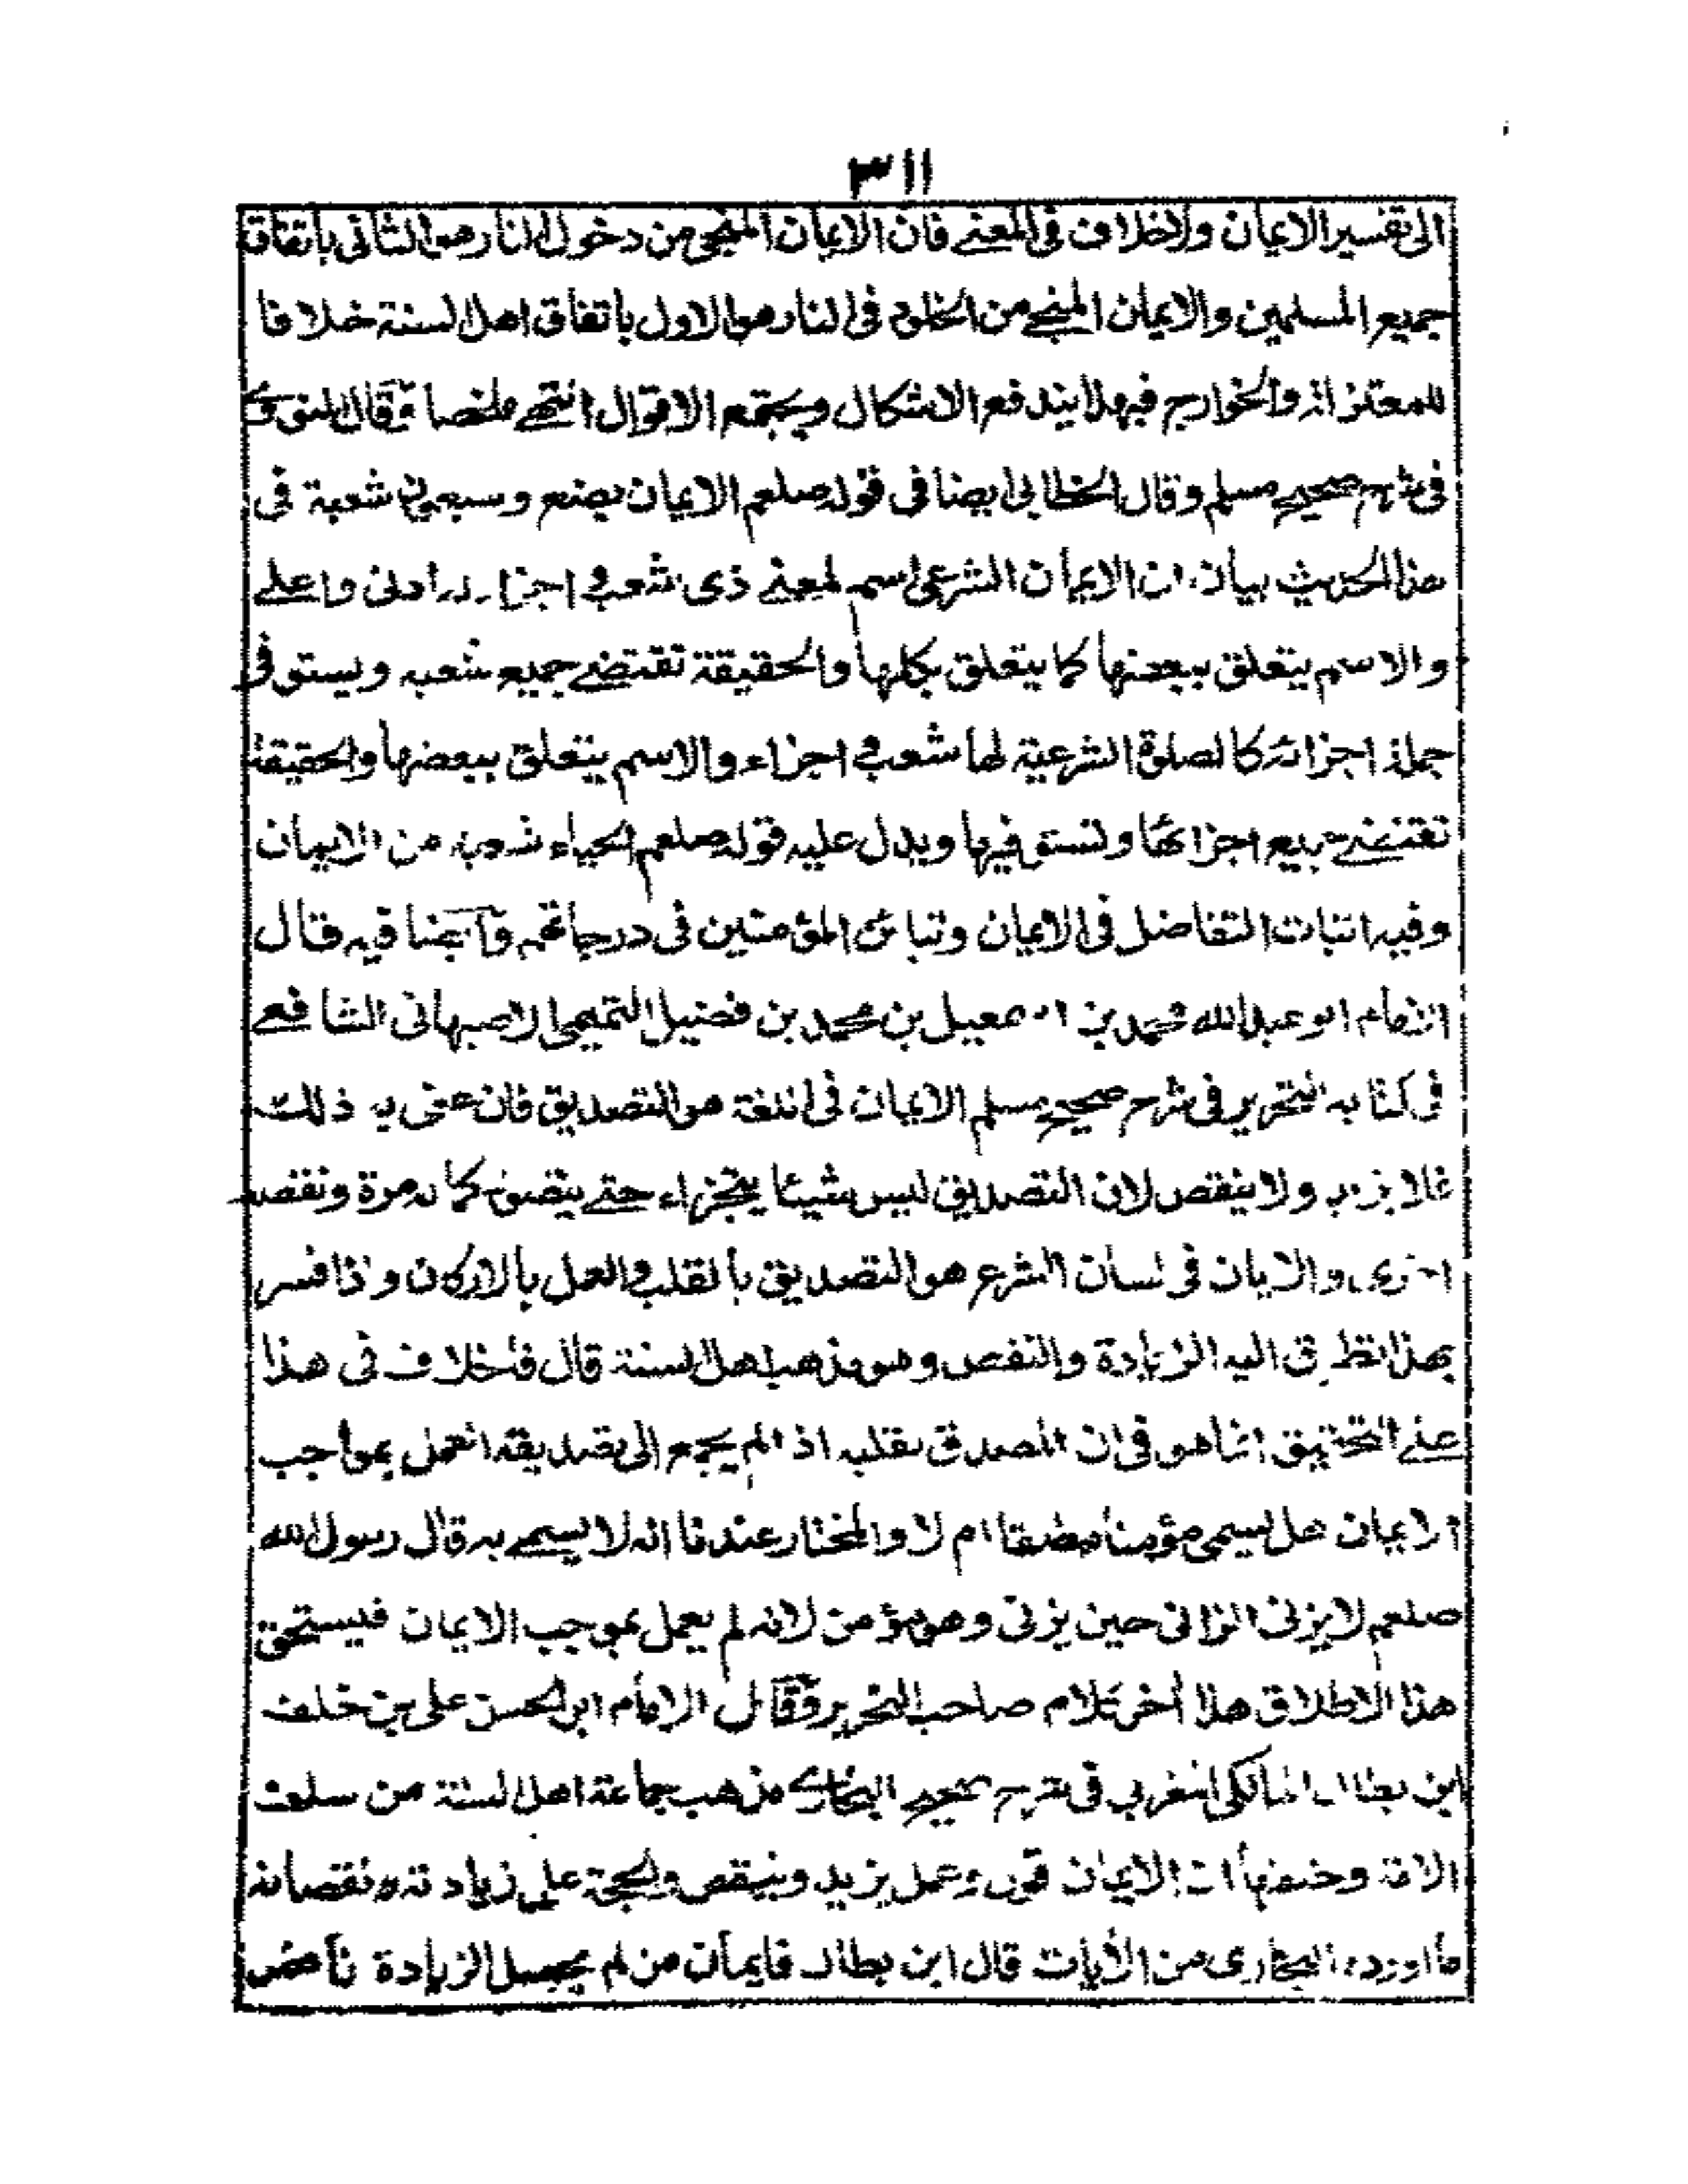 ٣١١
الى تفسير الايمان ولاخلاف فى المعنے فان الايمان المنجى من دخول النار هو الثانى باتفاق
جميع المسلمين والايمان المنجے من الخلود فى النار هو الاول باتفاق اهل السنة خلافا
للمعتزلة والخوارج فبهذا يندفع الاشكال ويجتمع الاقوال انتهے ملخصا وقال النووى
فى شرح صحيح مسلم وقال الخطابى ايضا فى قوله صلعم الايمان بضع وسبعون شعبة فى
هذا الحديث بيان ان الايمان الشرعى اسم لمعنے ذى شعب و اجزاء له ادنى واعلے
والاسم يتعلق ببعضها كما يتعلق بكلها والحقيقة تقتضے جميع شعبه ويستوفى
جملة اجزائه كالصلوة الشرعية لها شعب و اجزاء والاسم يتعلق ببعضها والحقيقة
تقتضے جميع اجزائها وتستوفيها ويدل عليه قوله صلعم الحياء شعبة من الايمان
وفيه اثبات التفاضل فى الايمان وتباين المؤمنين فى درجاتهم وايضا فيه قال
الامام ابو عبدالله محمد بن اسمعيل بن محمد بن فضيل التميمى الاصبهانى الشافعے
فى كتابه التحرير فى شرح صحيح مسلم الايمان فى اللغة هو التصديق فان عنى به ذلك
فلا يزيد ولا ينقص لان التصديق ليس شيئا يتجزاء حتے يتصور كماله مرة ونقصه
اخرى والايمان فى لسان الشرع هو التصديق بالقلب والعمل بالاركان واذا فسر
بهذا تطرق اليه الزيادة والنقص وهو مذهب اهل السنة قال فالخلاف فى هذا
علے التحقيق انما هو فى ان المصدق بقلبه اذا لم يجمع الى تصديقه العمل بمواجب
الايمان هل يسمى مؤمنا مطلقا ام لا والمختار عندنا انه لا يسمے به قال رسول الله
صلعم لا يزنى الزانى حين يزنى وهو مؤمن لانه لم يعمل بموجب الايمان فيستحق
هذا الاطلاق هذا أخر كلام صاحب التحرير وقال الامام ابو الحسن على بن خلف
ابن بطال المالكى المغربى فى شرح صحيح البخارى مذهب جماعة اهل السنة من سلف
الامة وخلفها ان الايمان قول وعمل يزيد وينقص والحجة على زيادته ونقصانه
ما اورده البخارى من الأيات قال ابن بطال فايمان من لم يحصل الزيادة ناقص